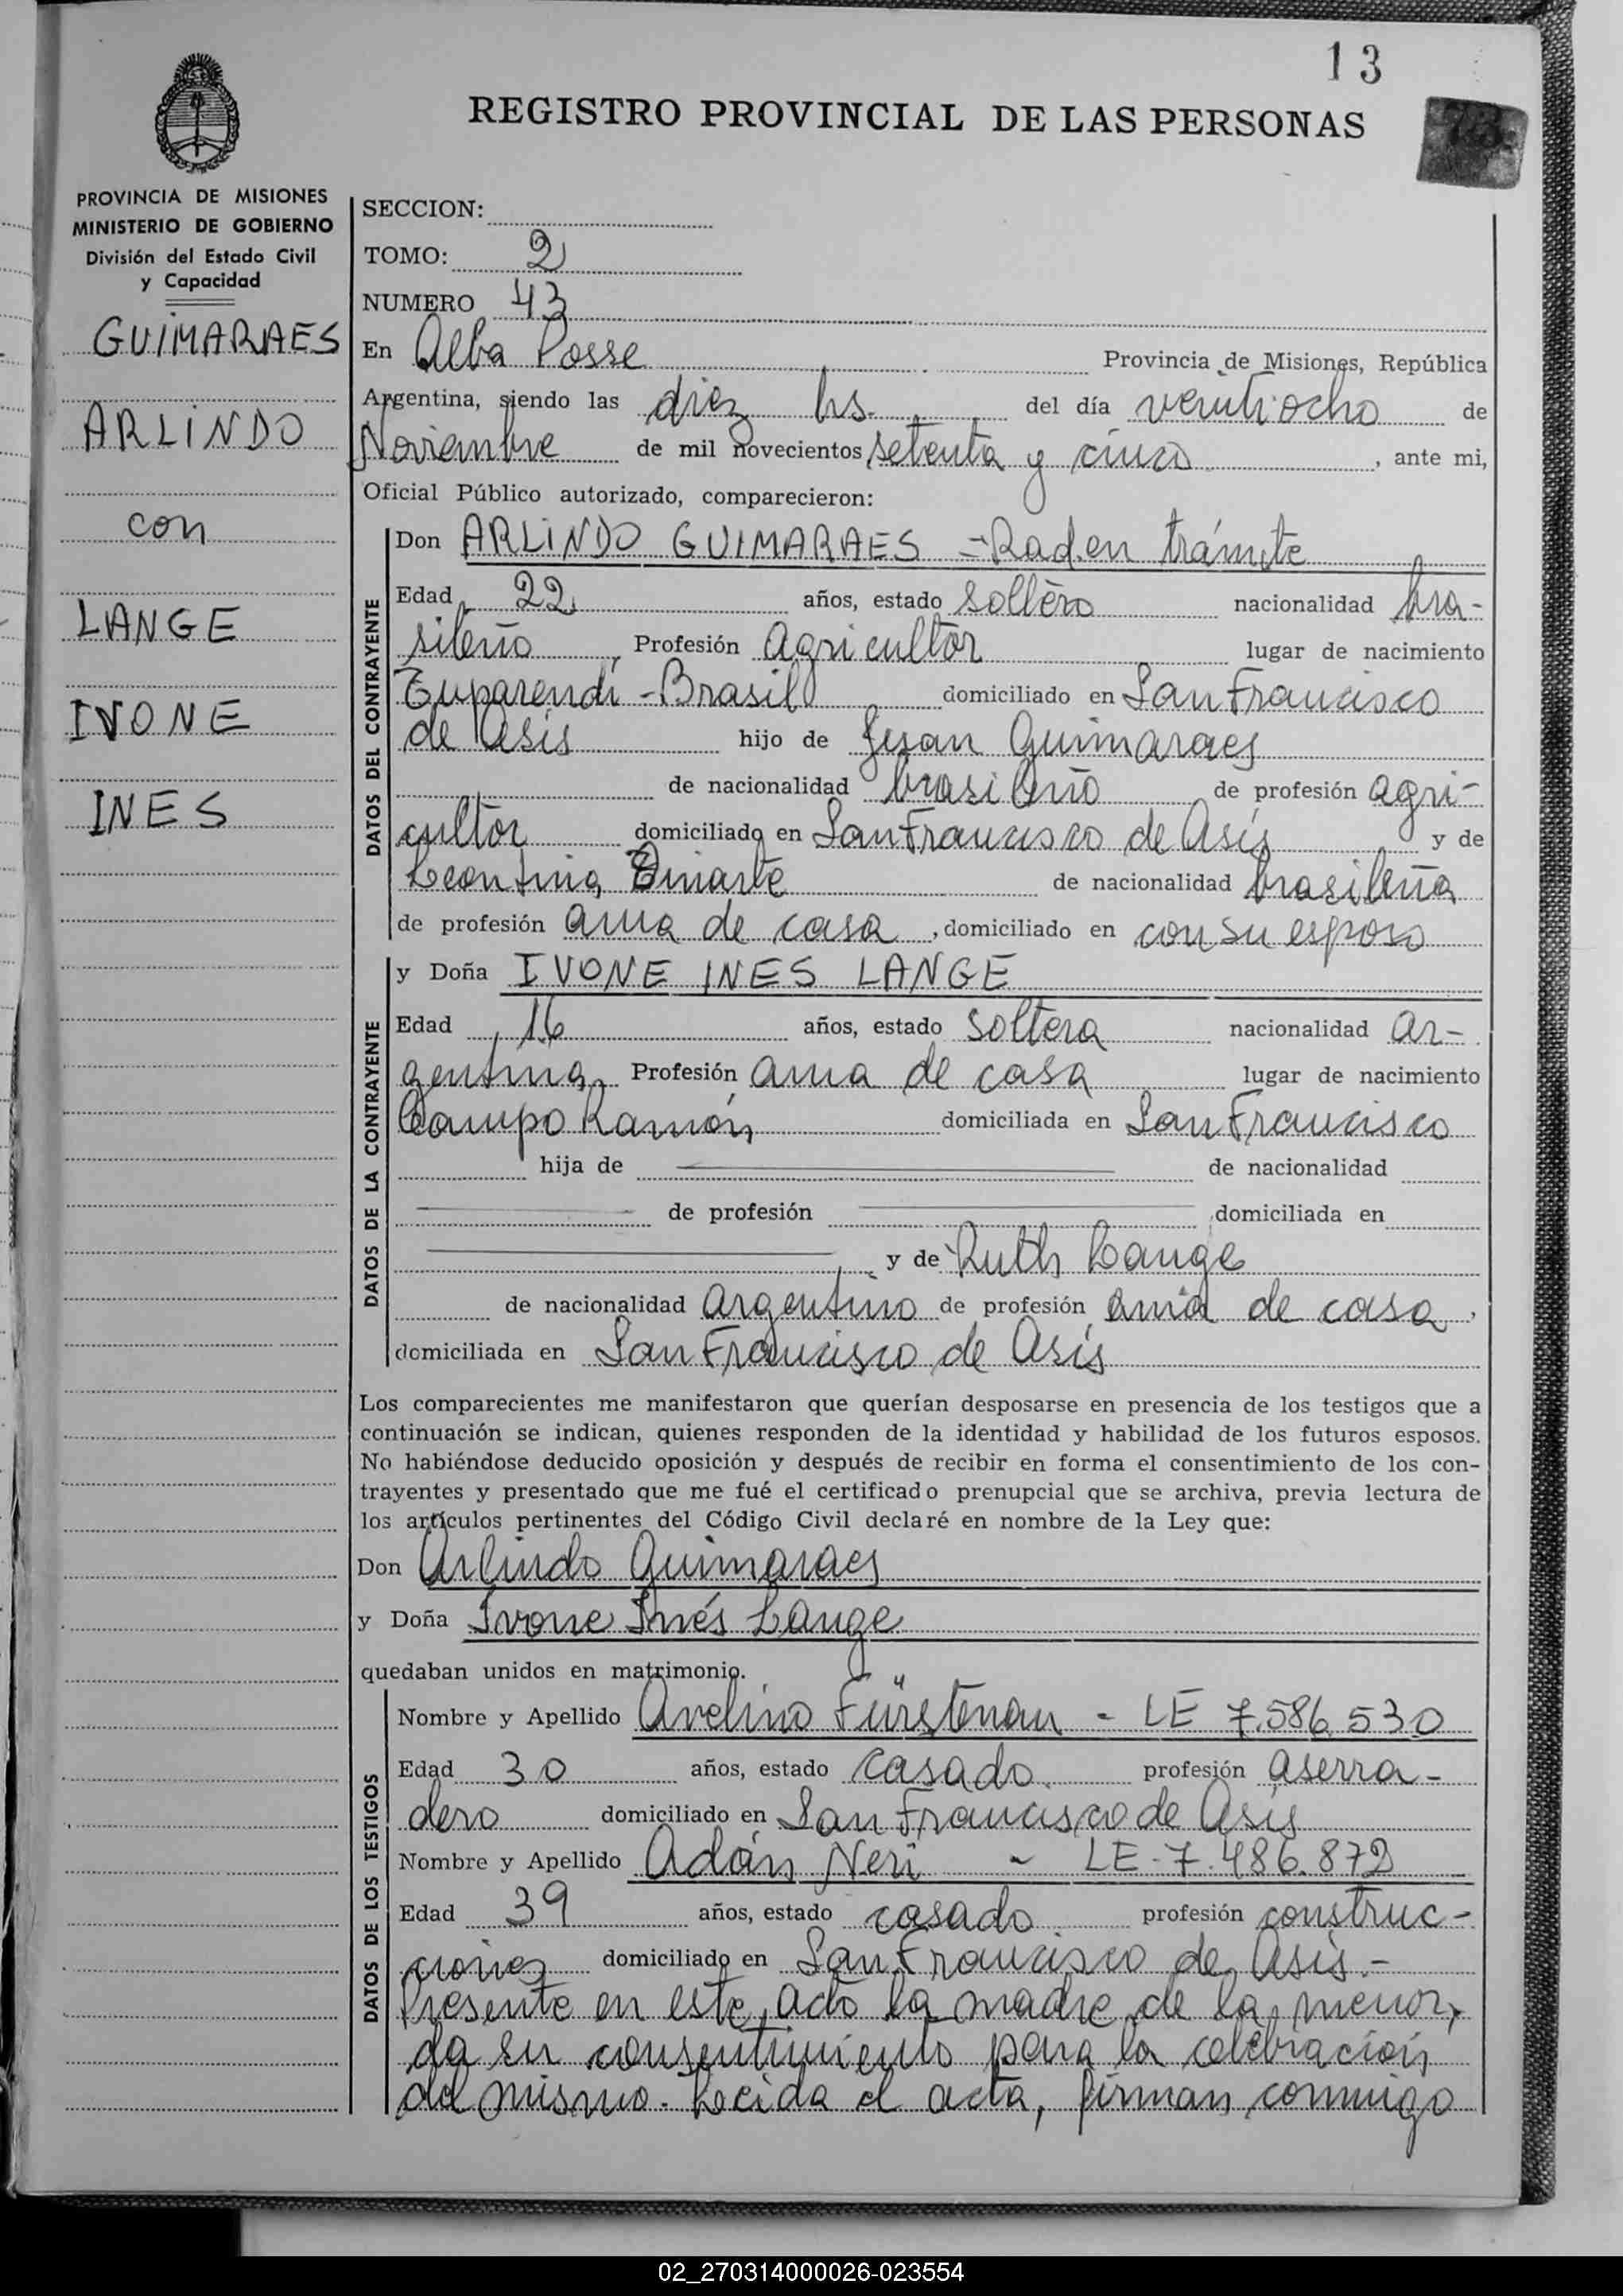 13
REGISTRO PROVINCIAL DE LAS PERSONAS
PROVINCIA DE MISIONES
MINISTERIO DE GOBIERNO
División del Estado Civil
y Capacidad
GUIMARAES
ARLINDO
con
LANGE
IVONE
INES
SECCION:
TOMO: 2
NUMERO 43
En Alba Posse Provincia de Misiones, República
Argentina, siendo las diez hs. del día veintiocho de
Noviembre de mil novecientos setenta y cinco, ante mi,
Oficial Público autorizado, comparecieron:
DATOS DEL CONTRAYENTE
Don ARLINDO GUIMARAES - Rad. en trámite
Edad 22 años, estado soltero nacionalidad bra-
sileño Profesión agricultor lugar de nacimiento
Tuparendi - Brasil domiciliado en San Francisco
de Asis hijo de Guimaraes
de nacionalidad brasileño de profesión agri-
cultor domiciliado en San Francisco de Asís y de
Leontina de nacionalidad brasileña
de profesión ama de casa, domiciliado en con su esposo
DATOS DE LA CONTRAYENTE
y Doña IVONE INES LANGE
Edad 16 años, estado soltera nacionalidad ar-
gentina, Profesión ama de casa lugar de nacimiento
Campo Ramón domiciliada en San Francisco
hija de de nacionalidad
de profesión domiciliada en
y de Ruth Lange
de nacionalidad argentino de profesión ama de casa,
domiciliada en San Francisco de Asís
Los comparecientes me manifestaron que querían desposarse en presencia de los testigos que a
continuación se indican, quienes responden de la identidad y habilidad de los futuros esposos.
No habiéndose deducido oposición y después de recibir en forma el consentimiento de los con-
trayentes y presentado que me fué el certificado prenupcial que se archiva, previa lectura de
los artículos pertinentes del Código Civil declaré en nombre de la Ley que:
Don Arlindo Guimaraes
y Doña Ivone Inés Lange
quedaban unidos en matrimonio.
DATOS DE LOS TESTIGOS
Nombre y Apellido Avelino Fürstenau - LE 7.586.530
Edad 30 años, estado casado. profesión aserra-
dero domiciliado en San Francisco de Asís
Nombre y Apellido Adán Neri - LE - 7.486.872
Edad 39 años, estado casado profesión construc-
ciones domiciliado en San Francisco de Asís.-
Presente en este acto la madre de la menor,
da su consentimiento para la celebración
del mismo. Leída el acta, firman conmigo
02_270314000026-023554